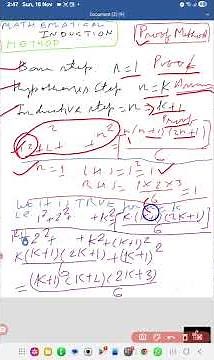 2:47 Sun, 16 Nov
Document (2) (9)
MATHEMATICAL
INDUCTION
METHOD
Proof Method
Base step n=1 Proof
Hypotheses step n=k
Inductive step = n = k+1
1²+2²+ + n² = n(n+1)(2n+1)/6
n=1 LHS = 1² = 1
RHS = 1×2×3/6 = 1
Let it is true n=k
1²+2²+ +k² = k(k+1)(2k+1)/6
1²+2²+ +k²+(k+1)²
k(k+1)(2k+1)/6+(k+1)²
= (k+1)(k+2)(2k+3)/6